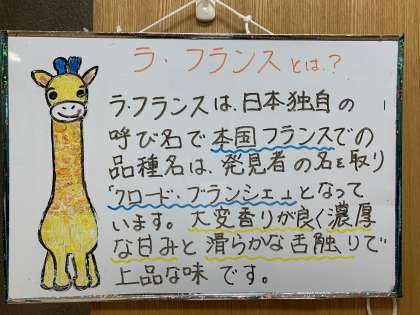 ラ・フランスとは?
ラ・フランスは、日本独自の
呼び名で本国フランスでの
品種名は、発見者の名を取り
「クロード・ブランシェ」となって
います。大変香りが良く濃厚
な甘みと滑らかな舌触りで
上品な味です。